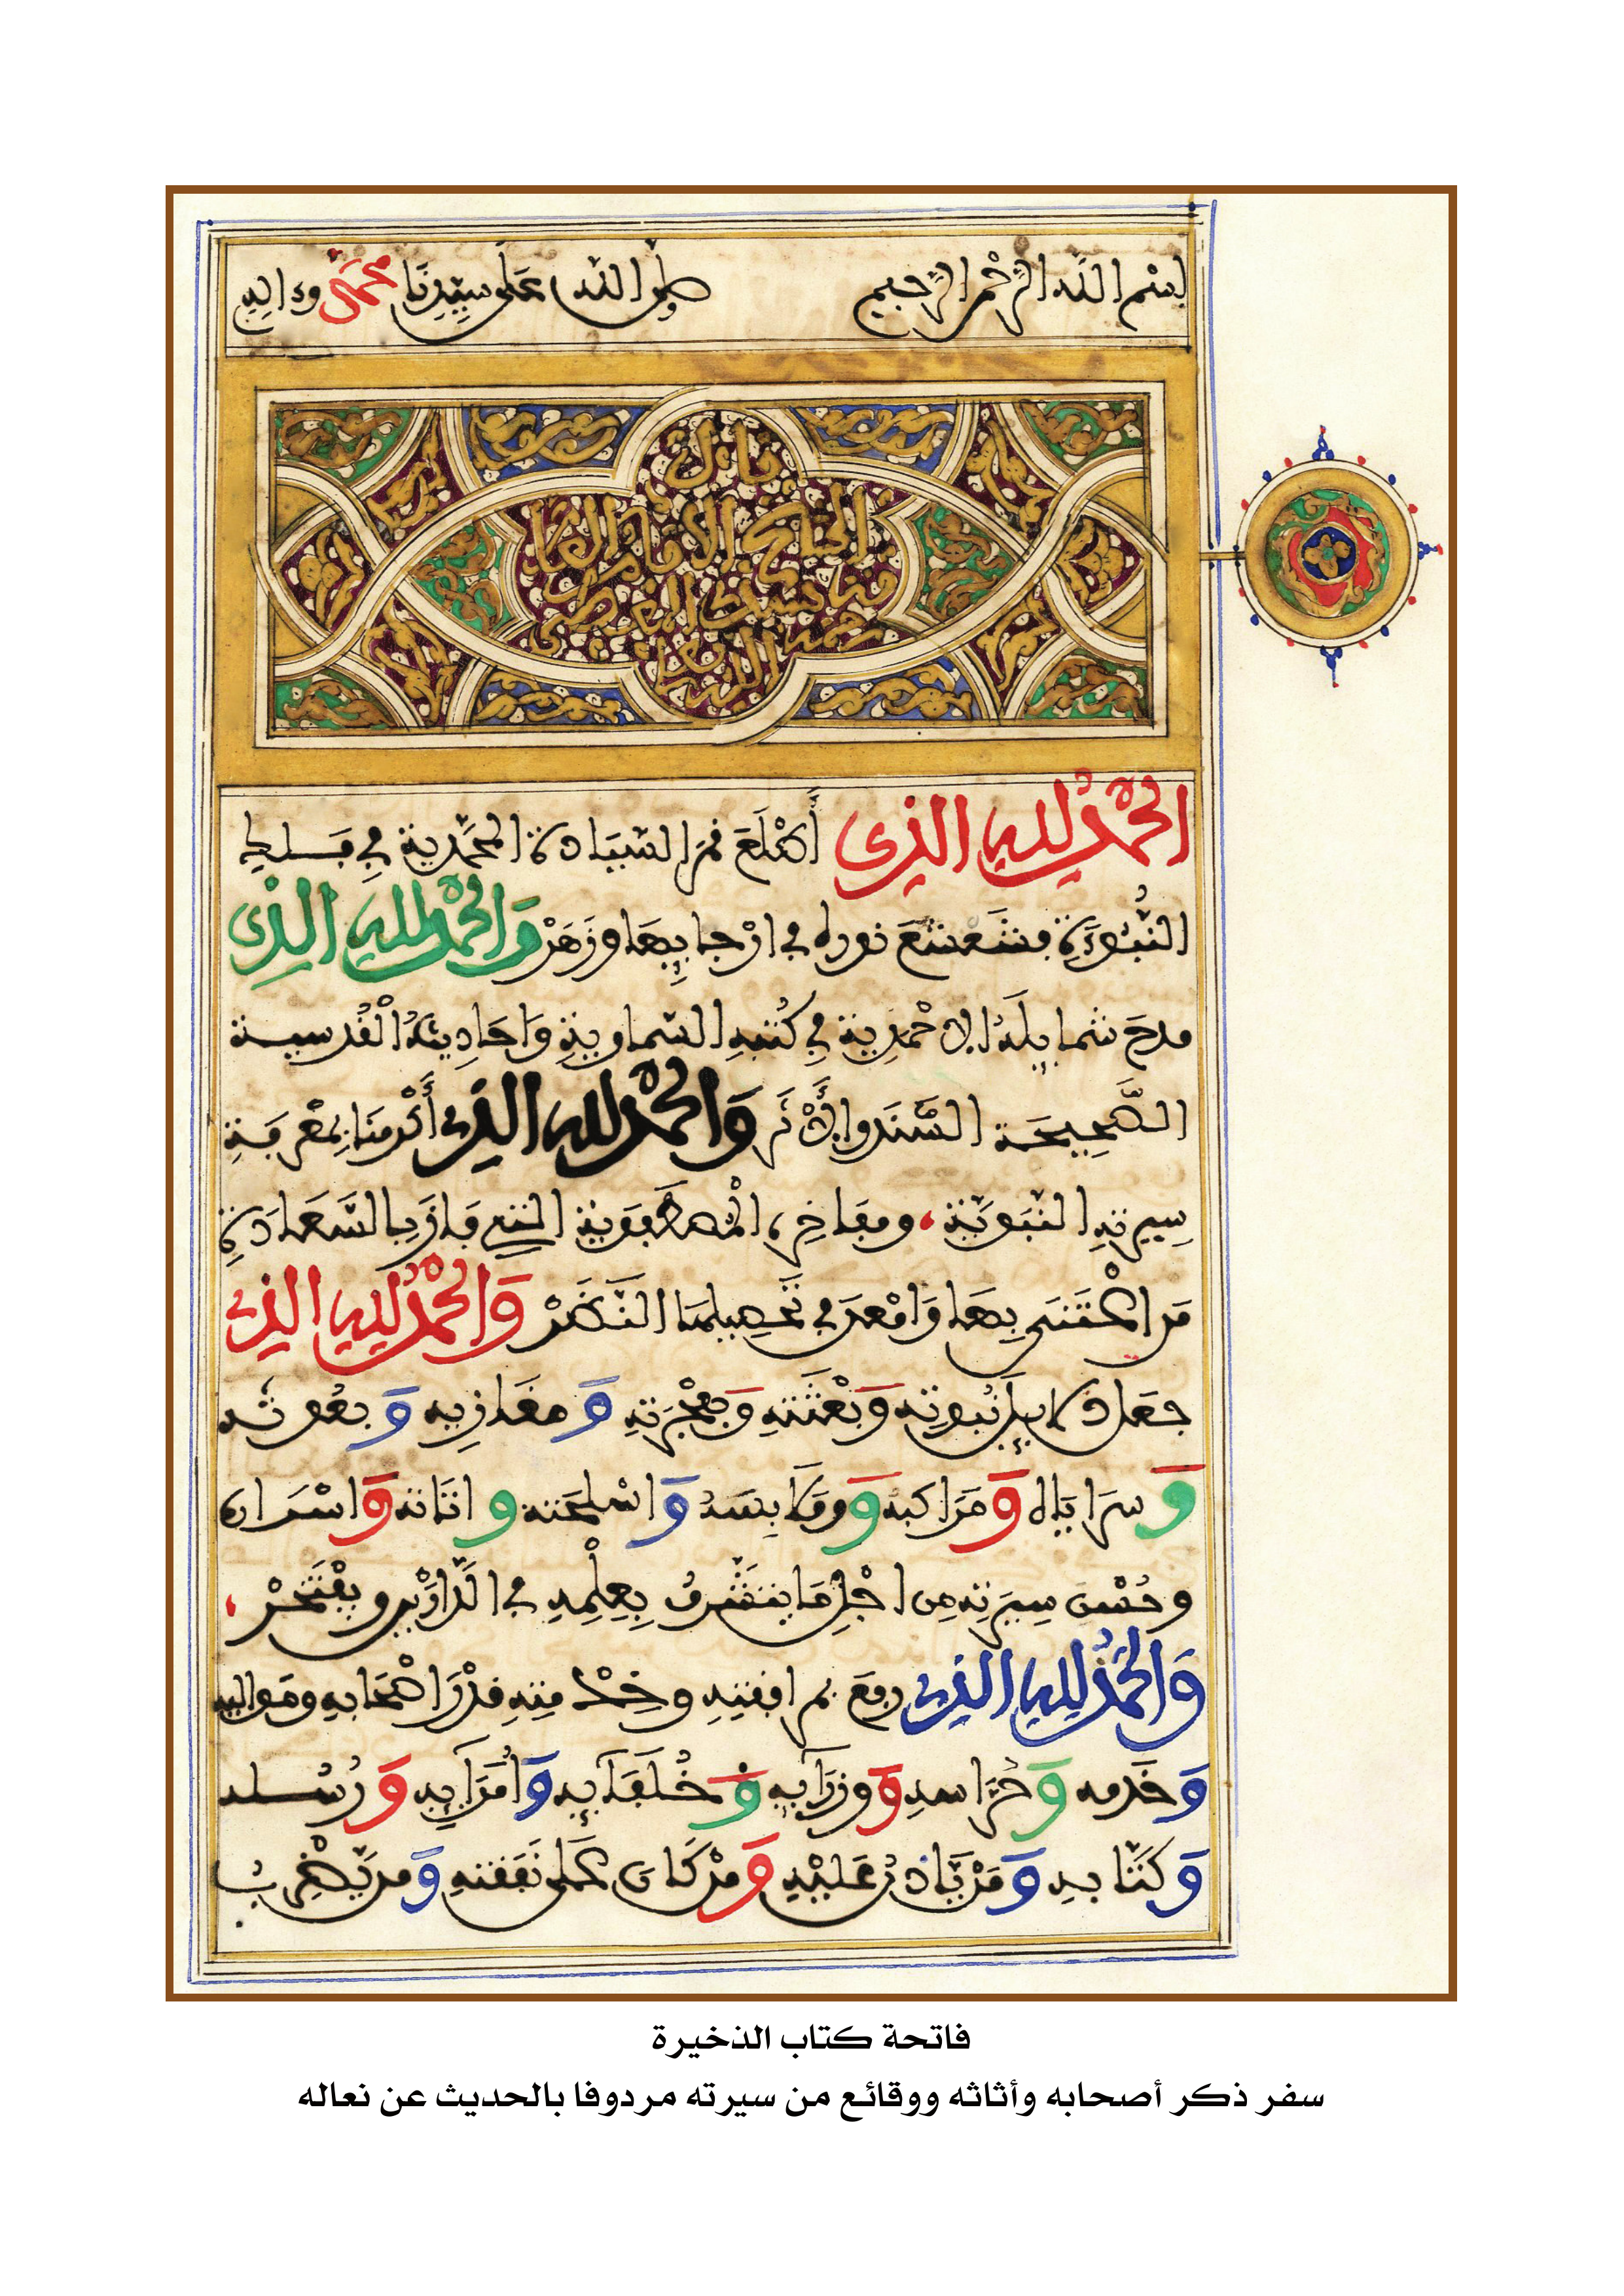 بسم الله الرحمن الرحيم صلى الله على سيدنا محمد وءاله
قال
الشيخ الإمام العالم
سيدي المعطى
رحمه
الله
الحمد لله الذي أطلع قمر السيادة المحمدية في فلك
النبوءة فشعشع نوره في ارجائها وزهر والحمد لله الذي
مدح شمائله الاحمدية في كتبه السماوية واحاديثه القدسية
الصحيحة السند والأثر والحمد لله الذي أكرمنا بمعرفة
سيرته النبوية، ومفاخره المصطفوية التي فاز بالسعادة
من اعتنى بها وامعن في تحصيلها النظر والحمد لله الذي
جعل دلايل نبوته وبعثته ومعجزته ومغازيه وبعوثه
وسراياه ومراكبه وملابسه واسلحته واثاثه واسراره
وحسن سيرته من اجل ما يتشرف بعلمه في الدارين ويفتخر،
والحمد لله الذي رفع بمرافقته وخدمته قدر اصحابه ومواليه
وخدمه وحراسه ووزرائه وخلفائه وأمرائه ورسله
وكتابه ومن ياذن عليه ومن كان على نفقته ومن يضرب
فاتحة كتاب الذخيرة
سفر ذكر أصحابه وأثاثه ووقائع من سيرته مردوفا بالحديث عن نعاله